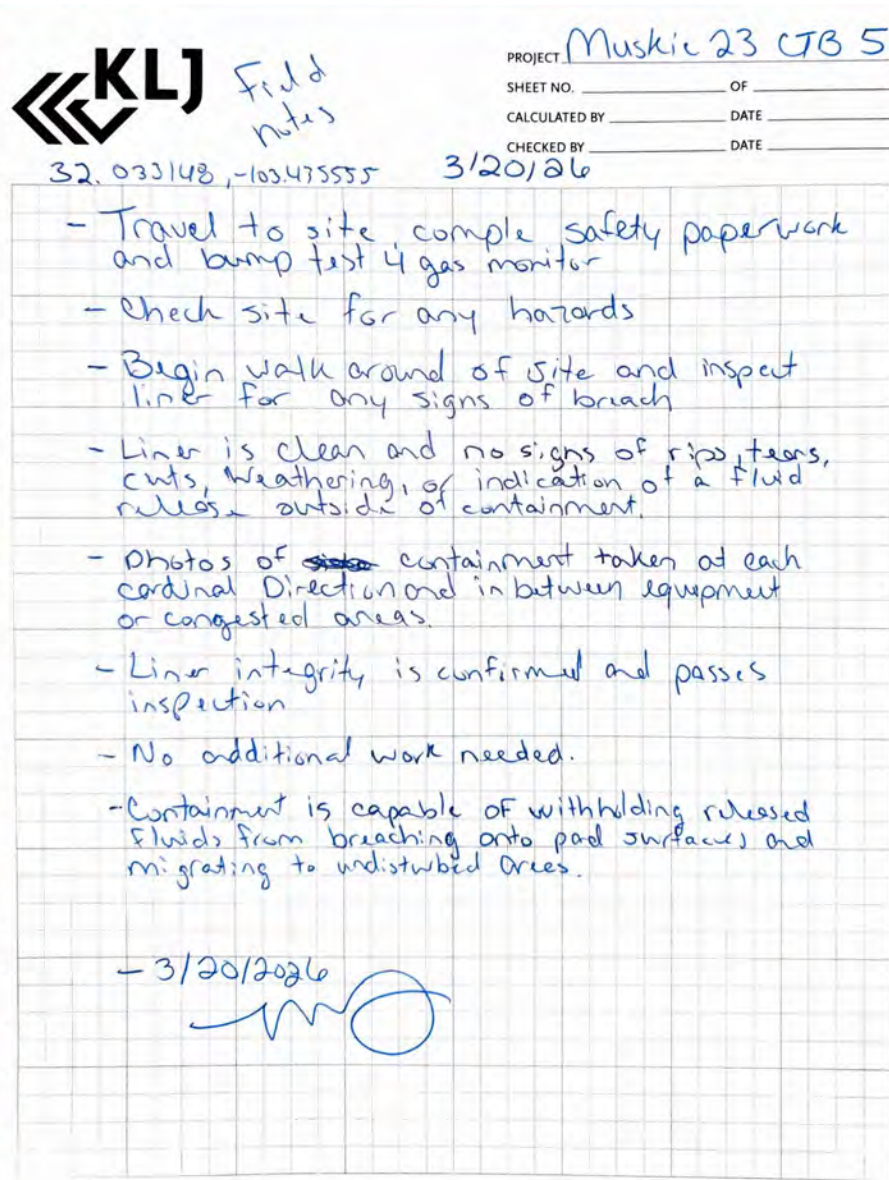 KLJ
Field
notes
PROJECT Muskie 23 CTB 5
SHEET NO. OF
CALCULATED BY DATE
CHECKED BY DATE
32.033148, -103.435555 3/20/26
- Travel to site, comple safety paperwork
and bump test 4 gas monitor
- Check site for any hazards
- Begin walk around of site and inspect
liner for any signs of breach
- Liner is clean and no signs of rips, tears,
cuts, Weathering, or indication of a fluid
release outside of containment.
- Photos of containment taken at each
cardinal Direction and in between equipment
or congested areas.
- Liner integrity is confirmed and passes
inspection
- No additional work needed.
- Containment is capable of withholding released
fluids from breaching onto pad surfaces and
migrating to undisturbed areas.
- 3/20/2026